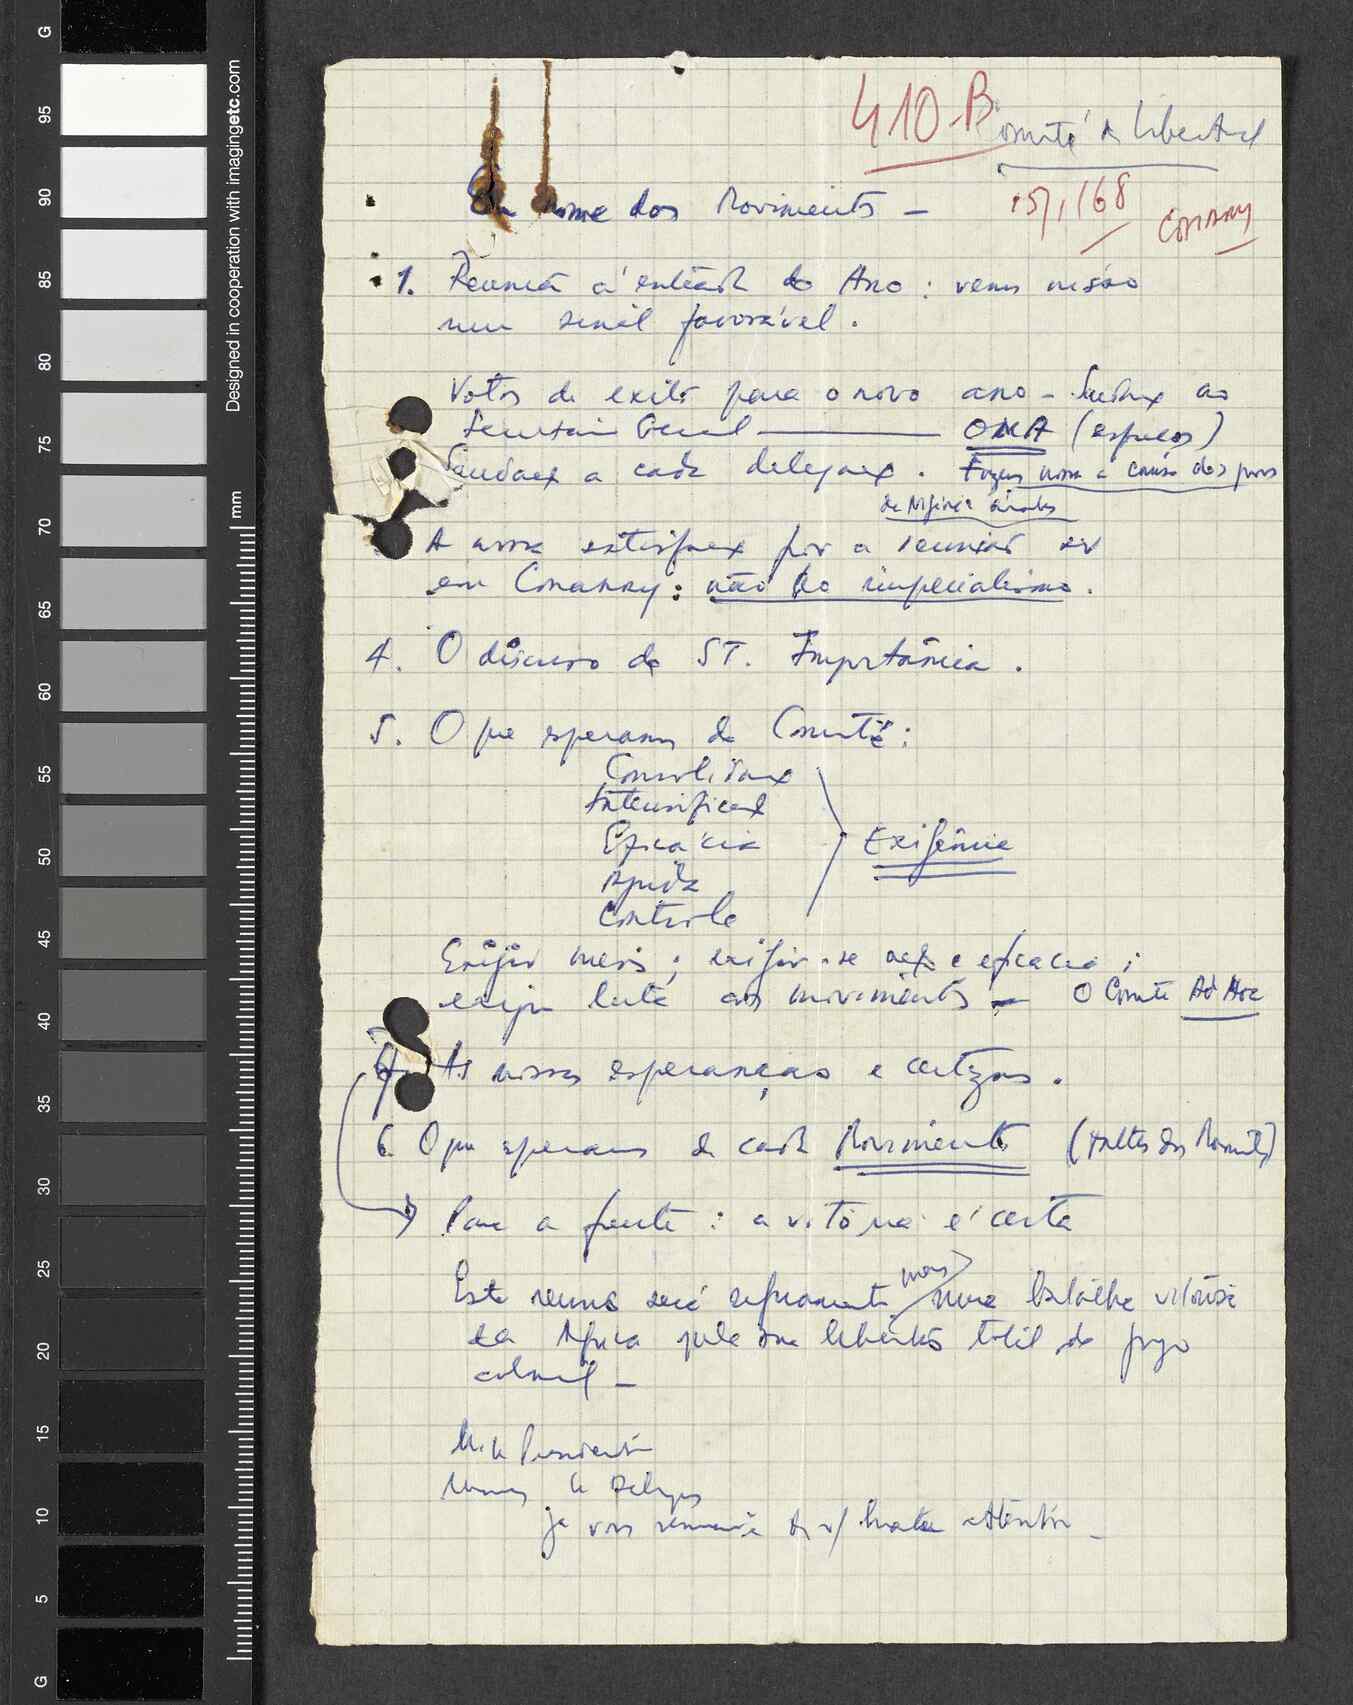 410-B
Comité de Libertação
15/1/68
Conakry
Em nome dos Movimentos —
1. Reunião à entrada do Ano: vemos nisso
um sinal favorável.
Votos de exito para o novo ano - Saudação ao
Secretário Geral — OUA (esforços)
Saudação a cada delegação. Fazemos nossa a causa dos povos
de África árabes
A nossa satisfação por a reunião
em Conakry: não do imperialismo.
4. O discurso do ST. Importância.
5. O que esperamos do Comité:
Consolidação
Intensificação
Eficácia
Ajuda
Controle
Exigência
Exigir mais; exigir-se e eficácia;
exigir luta aos movimentos — O Comité Ad Hoc
As nossas esperanças e certezas.
6. O que esperamos de cada Movimento (faltas dos Movimentos)
Para a frente: a vitória é certa
Esta reunião será seguramente mais uma batalha vitoriosa
da África pela sua libertação total do jugo
colonial —
M. le Président
Messieurs les Délégués
je vous remercie de v/ haute attention —
Designed in cooperation with imagingetc.com
mm
G
95
90
85
80
75
70
65
60
55
50
45
40
35
30
25
20
15
10
5
G